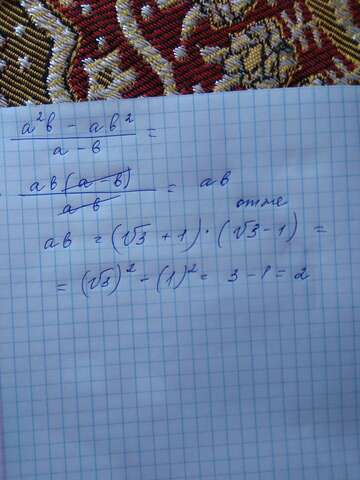 a²b - ab² / a - b =
ab(a - b) / a - b = ab
ab = (√3 + 1) · (√3 - 1) =
= (√3)² - (1)² = 3 - 1 = 2